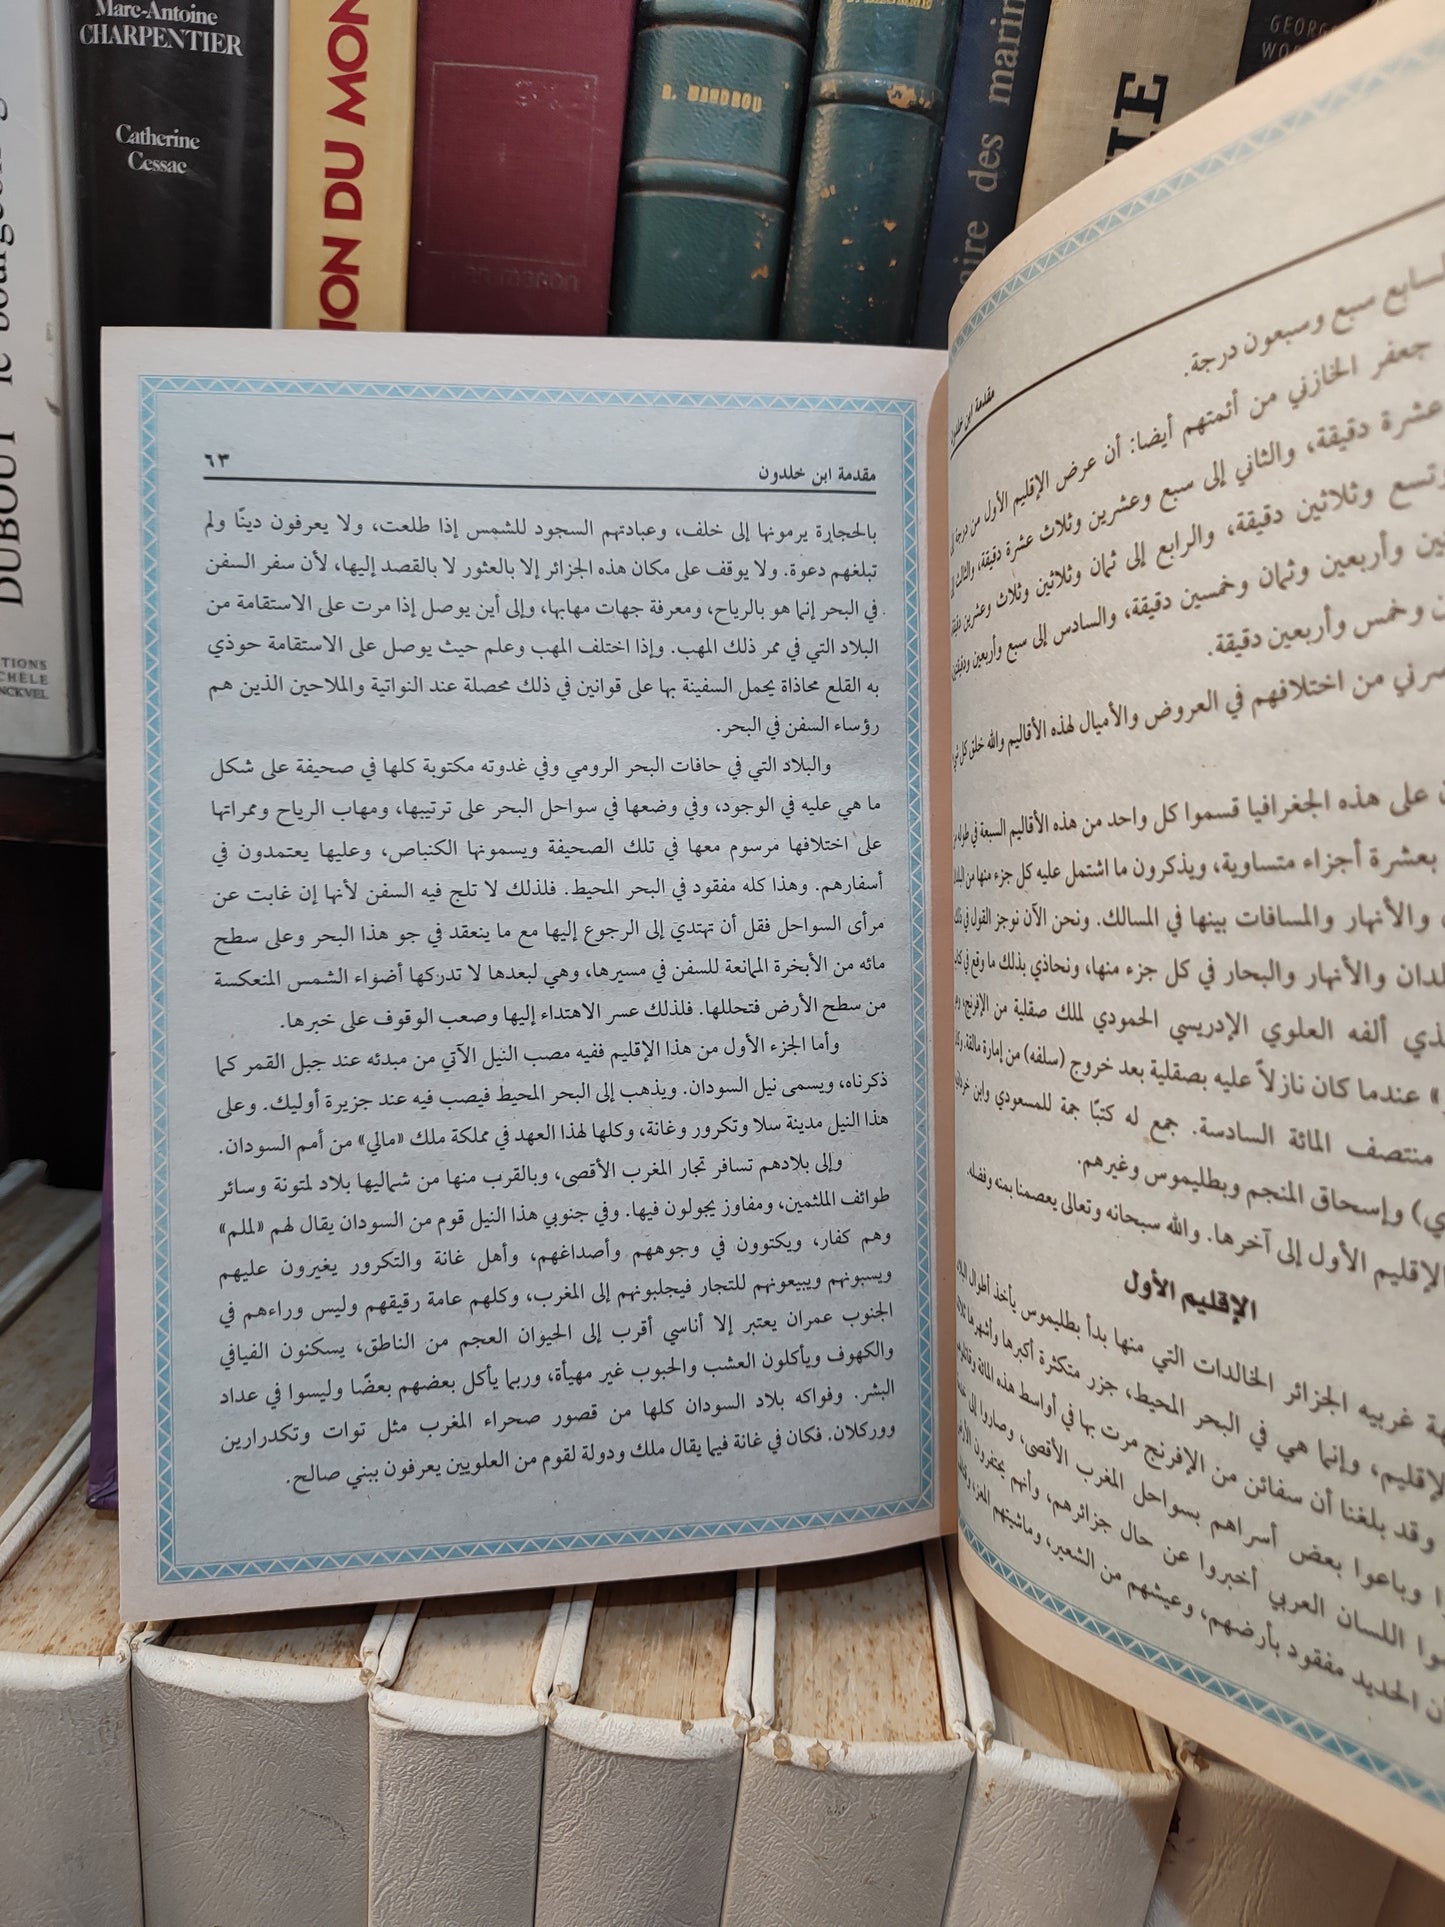 Marc-Antoine
CHARPENTIER
Catherine
Cessac
DUBOUT
ION DU MON
R. MANDROU
aire des marin
GEORGE
مقدمة ابن خلدون
٦٣
بالحجارة يرمونها إلى خلف، وعبادتهم السجود للشمس إذا طلعت، ولا يعرفون دينًا ولم
تبلغهم دعوة. ولا يوقف على مكان هذه الجزائر إلا بالعثور لا بالقصد إليها، لأن سفر السفن
في البحر إنما هو بالرياح، ومعرفة جهات مهابها، وإلى أين يوصل إذا مرت على الاستقامة من
البلاد التي في ممر ذلك المهب. وإذا اختلف المهب وعلم حيث يوصل على الاستقامة حوذي
به القلع محاذاة يحمل السفينة بها على قوانين في ذلك محصلة عند النواتية والملاحين الذين هم
رؤساء السفن في البحر.
والبلاد التي في حافات البحر الرومي وفي غدوته مكتوبة كلها في صحيفة على شكل
ما هي عليه في الوجود، وفي وضعها في سواحل البحر على ترتيبها، ومهاب الرياح وممراتها
على اختلافها مرسوم معها في تلك الصحيفة ويسمونها الكنباص، وعليها يعتمدون في
أسفارهم. وهذا كله مفقود في البحر المحيط. فلذلك لا تلج فيه السفن لأنها إن غابت عن
مرأى السواحل فقل أن تهتدي إلى الرجوع إليها مع ما ينعقد في جو هذا البحر وعلى سطح
مائه من الأبخرة الممانعة للسفن في مسيرها، وهي لبعدها لا تدركها أضواء الشمس المنعكسة
من سطح الأرض فتحللها. فلذلك عسر الاهتداء إليها وصعب الوقوف على خبرها.
وأما الجزء الأول من هذا الإقليم ففيه مصب النيل الآتي من مبدئه عند جبل القمر كما
ذكرناه، ويسمى نيل السودان. ويذهب إلى البحر المحيط فيصب فيه عند جزيرة أوليك. وعلى
هذا النيل مدينة سلا وتكرور وغانة، وكلها لهذا العهد في مملكة ملك «مالي» من أمم السودان.
وإلى بلادهم تسافر تجار المغرب الأقصى، وبالقرب منها من شماليها بلاد لمتونة وسائر
طوائف الملثمين، ومفاوز يجولون فيها. وفي جنوبي هذا النيل قوم من السودان يقال لهم «لملم»
وهم كفار، ويكتوون في وجوههم وأصداغهم، وأهل غانة والتكرور يغيرون عليهم
ويسبونهم ويبيعونهم للتجار فيجلبونهم إلى المغرب، وكلهم عامة رقيقهم وليس وراءهم في
الجنوب عمران يعتبر إلا أناسي أقرب إلى الحيوان العجم من الناطق، يسكنون الفيافي
والكهوف ويأكلون العشب والحبوب غير مهيأة، وربما يأكل بعضهم بعضًا وليسوا في عداد
البشر. وفواكه بلاد السودان كلها من قصور صحراء المغرب مثل توات وتكدرارين
ووركلان. فكان في غانة فيما يقال ملك ودولة لقوم من العلويين يعرفون ببني صالح.
مقدمة ابن خلدون
السابع سبع وسبعون درجة.
جعفر الخازني من أئمتهم أيضا: أن عرض الإقليم الأول من درجة
عشرة دقيقة، والثاني إلى سبع وعشرين وثلاث عشرة دقيقة، والثالث
وتسع وثلاثين دقيقة، والرابع إلى ثمان وثلاثين وثلاث وعشرين دقيقة
وأربعين وثمان وخمسين دقيقة، والسادس إلى سبع وأربعين ودقيقتين
وخمس وأربعين دقيقة.
من اختلافهم في العروض والأميال لهذه الأقاليم والله خلق كل
على هذه الجغرافيا قسموا كل واحد من هذه الأقاليم السبعة في طوله
بعشرة أجزاء متساوية، ويذكرون ما اشتمل عليه كل جزء منها من
والأنهار والمسافات بينها في المسالك. ونحن الآن نوجز القول في
والأنهار والبحار في كل جزء منها، ونحاذي بذلك ما وقع في
ألفه العلوي الإدريسي الحمودي لملك صقلية من الإفرنج،
عندما كان نازلاً عليه بصقلية بعد خروج (سلفه) من إمارة مالقة،
منتصف المائة السادسة. جمع له كتبًا جمة للمسعودي وابن
وإسحاق المنجم وبطليموس وغيرهم.
الإقليم الأول إلى آخرها. والله سبحانه وتعالى يعصمنا بمنه وفضله.
الإقليم الأول
غربيه الجزائر الخالدات التي منها بدأ بطليموس يأخذ أطوال
الإقليم، وإنما هي في البحر المحيط، جزر متكثرة أكبرها وأشهرها
وقد بلغنا أن سفائن من الإفرنج مرت بها في أواسط هذه المائة
وباعوا بعض أسراهم بسواحل المغرب الأقصى، وصاروا إلى
اللسان العربي أخبروا عن حال جزائرهم، وأنهم يحتفرون
الحديد مفقود بأرضهم، وعيشهم من الشعير، وماشيتهم المعز،